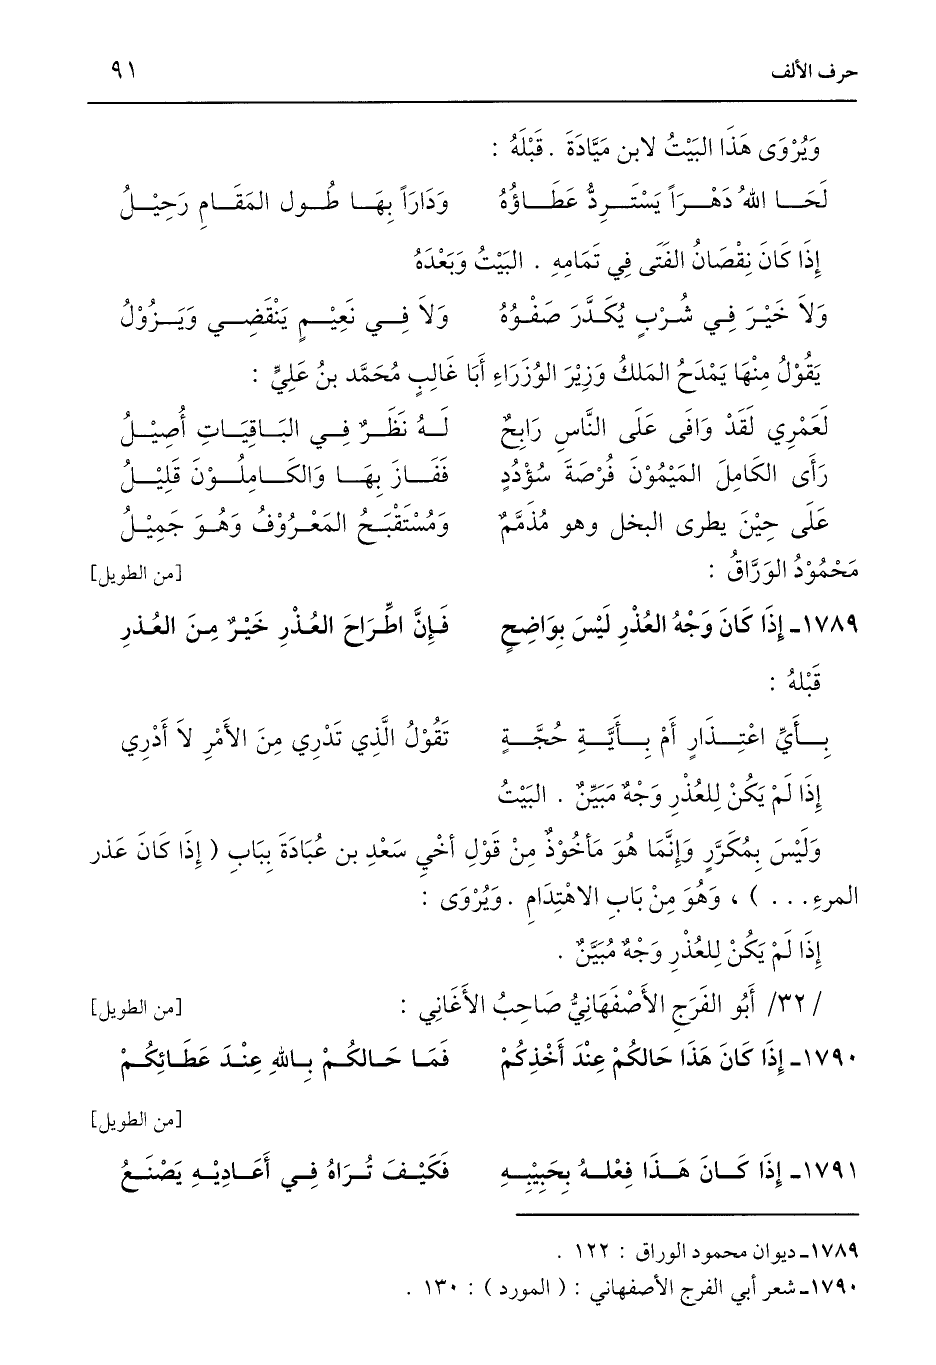 حرف الألف ٩١
وَيُرْوَى هَذَا البَيْتُ لابن مَيَّادَةَ . قَبْلَهُ :
لَحَـا اللهُ دَهْـرَاً يَسْتَـرِدُّ عَطَـاؤُهُ وَدَارَاً بِهَـا طُـول المَقَـامِ رَحِيْـلُ
إِذَا كَانَ نِقْصَانُ الفَتَى فِي تَمَامِهِ . البَيْتُ وَبَعْدَهُ
وَلاَ خَيْـرَ فِـي شُـرْبٍ يُكَـدَّرَ صَفْـوُهُ وَلاَ فِـي نَعِيْـمٍ يَنْقَضِـي وَيَـزُوْلُ
يَقُوْلُ مِنْهَا يَمْدَحُ المَلكُ وَزِيْرَ الوُزَرَاءِ أَبَا غَالِبٍ مُحَمَّد بنُ عَلِيٍّ :
لَعَمْرِي لَقَدْ وَافَى عَلَى النَّاسِ رَابِحٌ لَـهُ نَظَـرٌ فِـي البَـاقِيَـاتِ أَصِيْـلُ
رَأَى الكَامِلَ المَيْمُوْنَ فُرْصَةَ سُؤْدُدٍ فَفَـازَ بِهَـا وَالكَـامِلُـوْنَ قَلِيْـلُ
عَلَى حِيْنَ يطرى البخل وهو مُذَمَّمٌ وَمُسْتَقْبَـحُ المَعْـرُوْفُ وَهُـوَ جَمِيْـلُ
مَحْمُوْدُ الوَرَّاقُ : [من الطويل]
١٧٨٩ـ إِذَا كَانَ وَجْهُ العُذْرِ لَيْسَ بِوَاضِحٍ فَـإِنَّ اطِّـرَاحَ العُـذْرِ خَيْـرٌ مِـنَ العُـذرِ
قَبْلهُ :
بِـأَيِّ اعْتِـذَارٍ أَمْ بِـأَيَّـةِ حُجَّـةٍ تَقُوْلُ الَّذِي تَدْرِي مِنَ الأَمْرِ لاَ أَدْرِي
إِذَا لَمْ يَكُنْ لِلعُذْرِ وَجْهٌ مَبَيِّنٌ . البَيْتُ
وَلَيْسَ بِمُكَرَّرٍ وَإِنَّمَا هُوَ مَأخُوْذٌ مِنْ قَوْلِ أَخْيِ سَعْدِ بن عُبَادَةَ بِبَابِ ( إِذَا كَانَ عَذر
المرءِ . . . ) ، وَهُوَ مِنْ بَابِ الاهْتِدَامِ . وَيُرْوَى :
إِذَا لَمْ يَكُنْ لِلعُذْرِ وَجْهٌ مُبَيَّنٌ .
/ ٣٢/ أَبُو الفَرَجِ الأَصْفَهَانِيُّ صَاحِبُ الأَغَانِي : [من الطويل]
١٧٩٠ـ إِذَا كَانَ هَذَا حَالكُمْ عِنْدَ أَخْذِكُمْ فَمَـا حَـالكُـمْ بِـاللهِ عِنْـدَ عَطَـائِكُـمْ
[من الطويل]
١٧٩١ـ إِذَا كَـانَ هَـذَا فِعْلـهُ بِحَبِيْبِـهِ فَكَيْـفَ تُـرَاهُ فِـي أَعَـادِيْـهِ يَصْنَـعُ
١٧٨٩ـ ديوان محمود الوراق : ١٢٢ .
١٧٩٠ـ شعر أبي الفرج الأصفهاني : ( المورد ) : ١٣٠ .